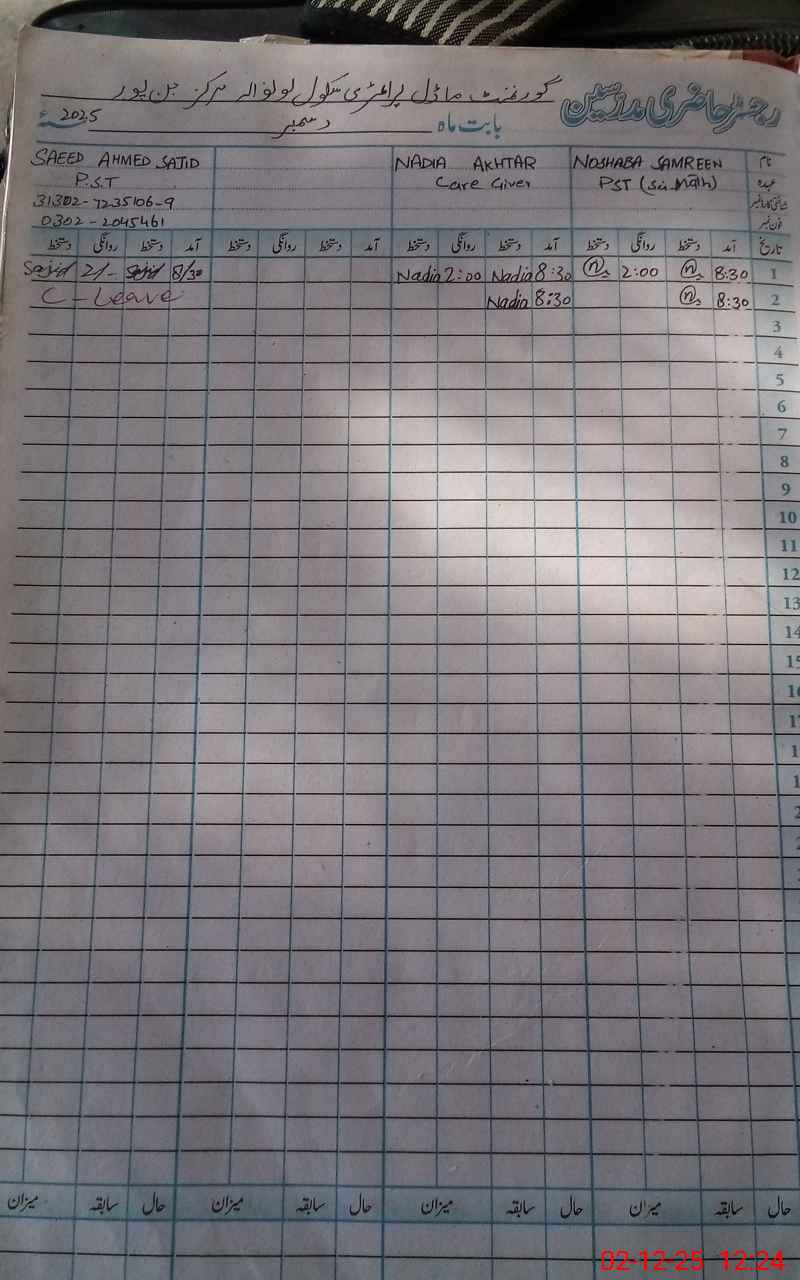 رجسٹر حاضری مدرسین
گورنمنٹ ماڈل پرائمری سکول لولوالہ مرکز جن پور
بابت ماہ دسمبر 2025ء
نام NOSHABA SAMREEN NADIA AKHTAR SAEED AHMED SAJID
عہدہ PST (Sci Math) Care Giver P.S.T
شناختی کارڈ نمبر 31302-7235106-9
فون نمبر 0302-2045461
تاریخ آمد دستخط روانگی دستخط آمد دستخط روانگی دستخط آمد دستخط روانگی دستخط آمد دستخط روانگی دستخط
1 8:30 n 2:00 n 8:30 Nadia 2:00 Nadia 8/30 Sajid 2/- Sajid
2 8:30 n 8:30 Nadia C-Leave
3
4
5
6
7
8
9
10
11
12
13
14
15
16
حال سابقہ میزان حال سابقہ میزان حال سابقہ میزان حال سابقہ میزان
02-12-25 12:24